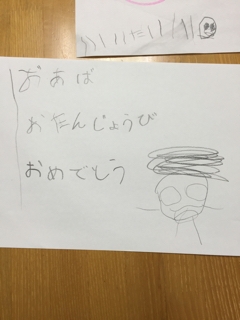 おあば
おたんじょうび
おめでもう